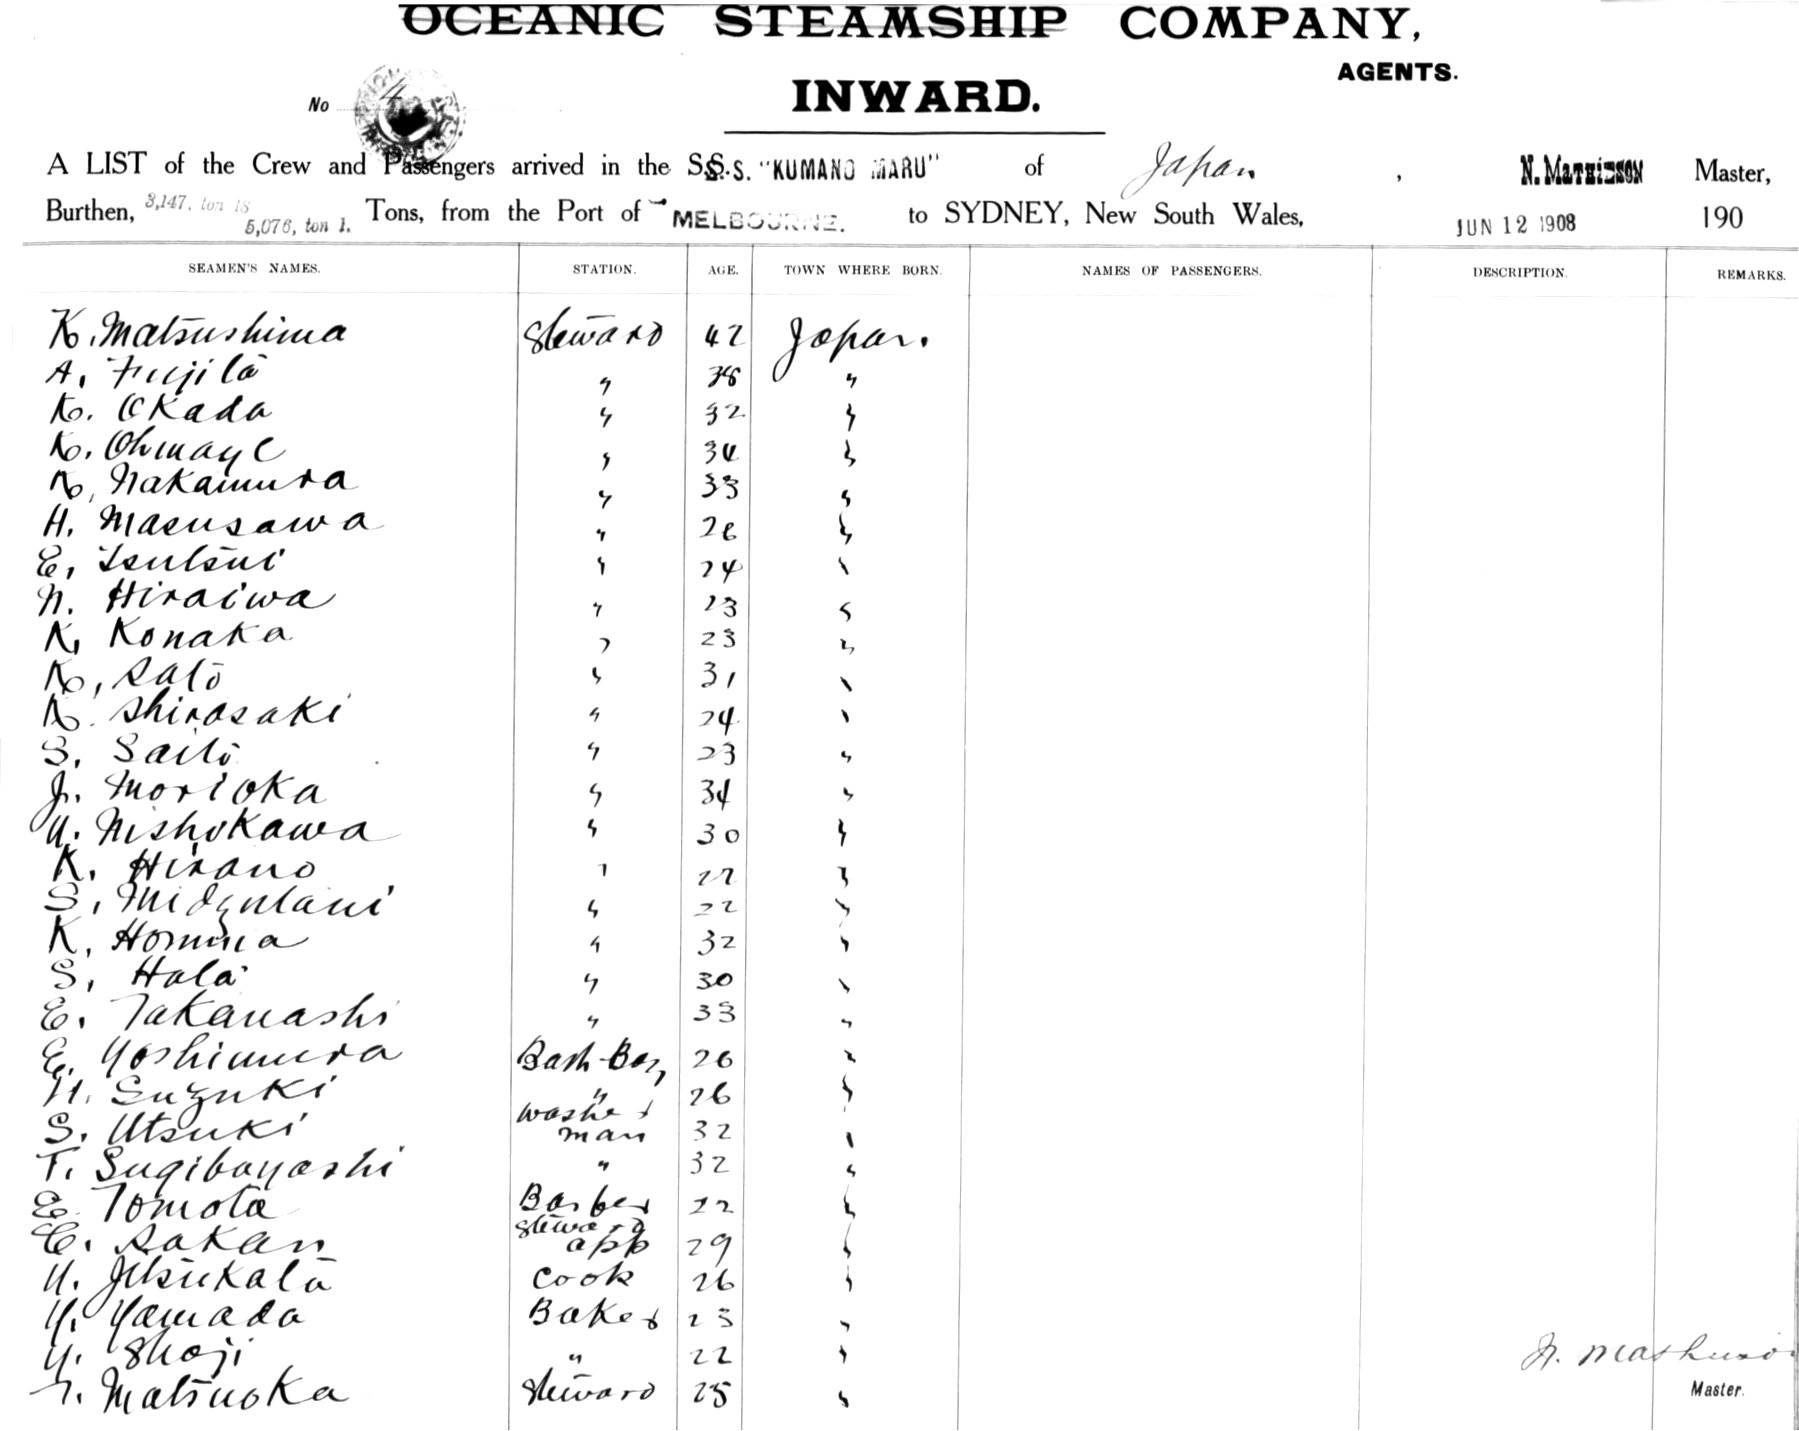 OCEANIC STEAMSHIP COMPANY,
AGENTS.
INWARD.
No 4
A LIST of the Crew and Passengers arrived in the S.S. S.S. "KUMANO MARU" of Japan, N. MATHIESON Master,
Burthen, 3,147. ton 18 5,076, ton 1. Tons, from the Port of MELBOURNE. to SYDNEY, New South Wales, JUN 12 1908 190
SEAMEN'S NAMES. STATION. AGE. TOWN WHERE BORN. NAMES OF PASSENGERS. DESCRIPTION. REMARKS.
K. Matsushima Steward 42 Japan.
A. Fujita " 38 "
K. Okada " 32 "
K. Ohmaye " 34 "
K. Nakamura " 33 "
H. Masusawa " 26 "
E. Tsutsui " 24 "
N. Hiraiwa " 23 "
K. Konaka " 23 "
K. Sato " 31 "
K. Shirasaki " 24 "
S. Saito " 23 "
J. Morioka " 34 "
U. Nishokawa " 30 "
K. Hirano " 22 "
S. Midzutani " 22 "
K. Homma " 32 "
S. Hata " 30 "
E. Takanashi " 33 "
E. Yoshimura Bath-Boy 26 "
H. Suzuki " 26 "
S. Utsuki washer man 32 "
T. Sugibayashi " 32 "
E. Tomota Barber 22 "
E. Sakan Steward app 29 "
U. Jitsukata Cook 26 "
Y. Yamada Baker 23 "
Y. Shoji " 22 "
T. Matsuoka Steward 25 "
N. Mathieson
Master.